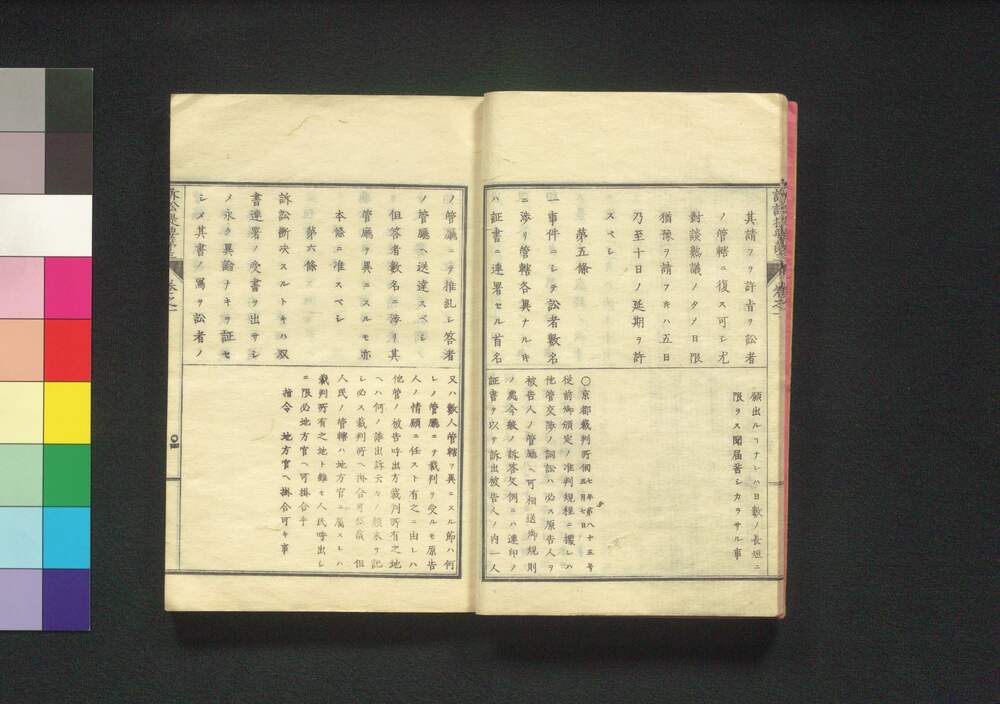 其請フヲ許肯ヲ訟者
ノ管轄ニ復ス可シ尤
對談熟議ノタメ日限
猶豫ヲ請フキハ五日
乃至十日ノ延期ヲ許
スベシ
第五條
一事件ニシテ訟者數名
ニ渉リ管轄各異ナル片
ハ証書ニ連署セル首名
願出ルヿナレハ日數ノ長短ニ
限ラス聞届苦シカラサル事
〇京都裁判所伺七年第八十五号五月七日
從前御頒定ノ准判規程ニ據レハ
他管交際ノ詞訟ハ必ス原告人ヲ
被告人ノ管廳ヘ可相送御規則
ノ處今般ノ訴答文例ニハ連印ノ
証書ヲ以テ訴出被告人ノ内一人
ノ管廳ニテ推糺シ答者
ノ管廳ヘ送達スベシ
但答者數名ニ渉リ其
管廳ヲ異ニスルモ亦
本條ニ准スベシ
第六條
訴訟斷决スルトキハ双
書連署ノ受書ヲ出サシ
メ永ク異論ナキヲ証セ
シメ其書ノ寫ヲ訟者ノ
又ハ數人管轄ヲ異ニスル節ハ何
レノ管廳ニテ裁判ヲ受ルモ原告
人ノ情願ニ任スト有之ニ由レハ
他管ノ被告呼出方裁判所有之地
ヘハ何ノ誰出訴云々ノ願末ヲ記
シ必ス裁判所ヘ掛合可然哉但
人民ノ管轄ハ地方官ニ屬スレハ
裁判所有之地ト雖モ人民呼出シ
ニ限必地方官ヘ可掛合乎
指令 地方官ヘ掛合可キ事